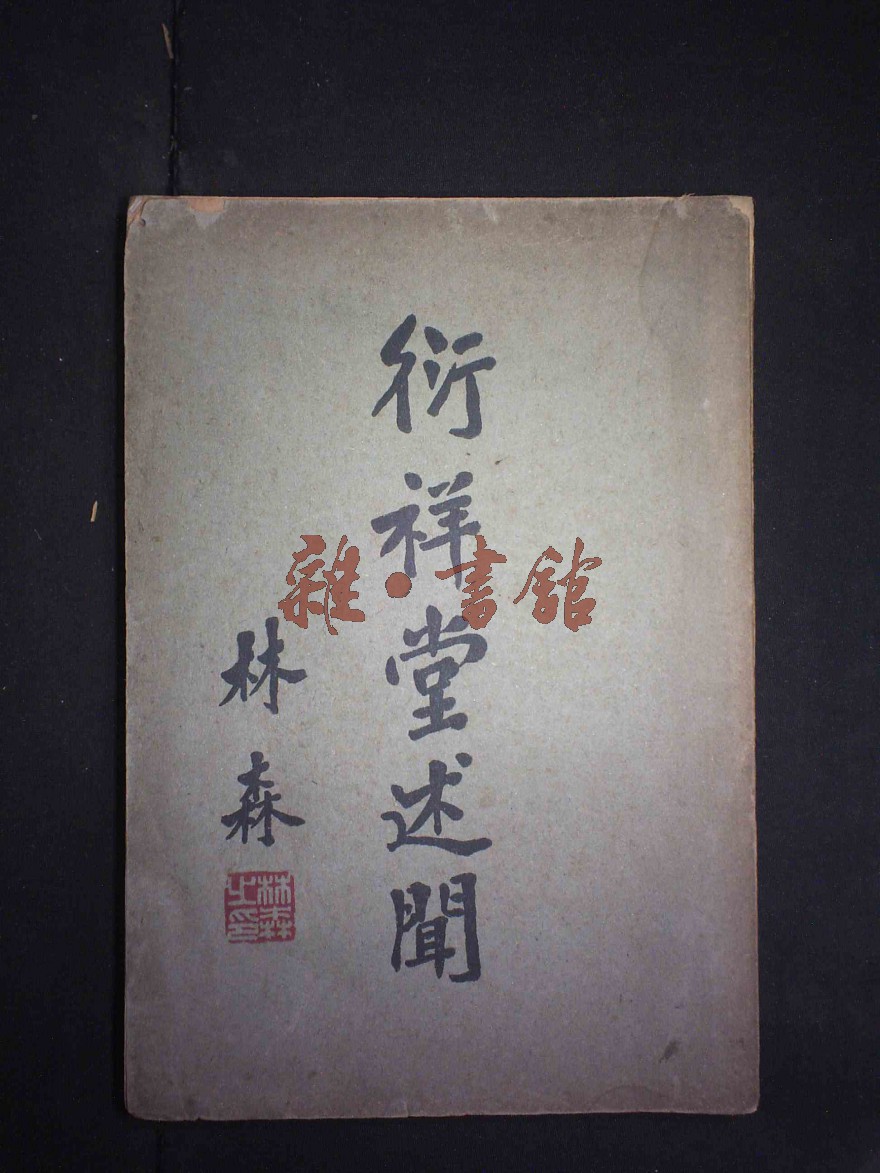 衍祥堂述聞
林森
林森之印
雜·書館